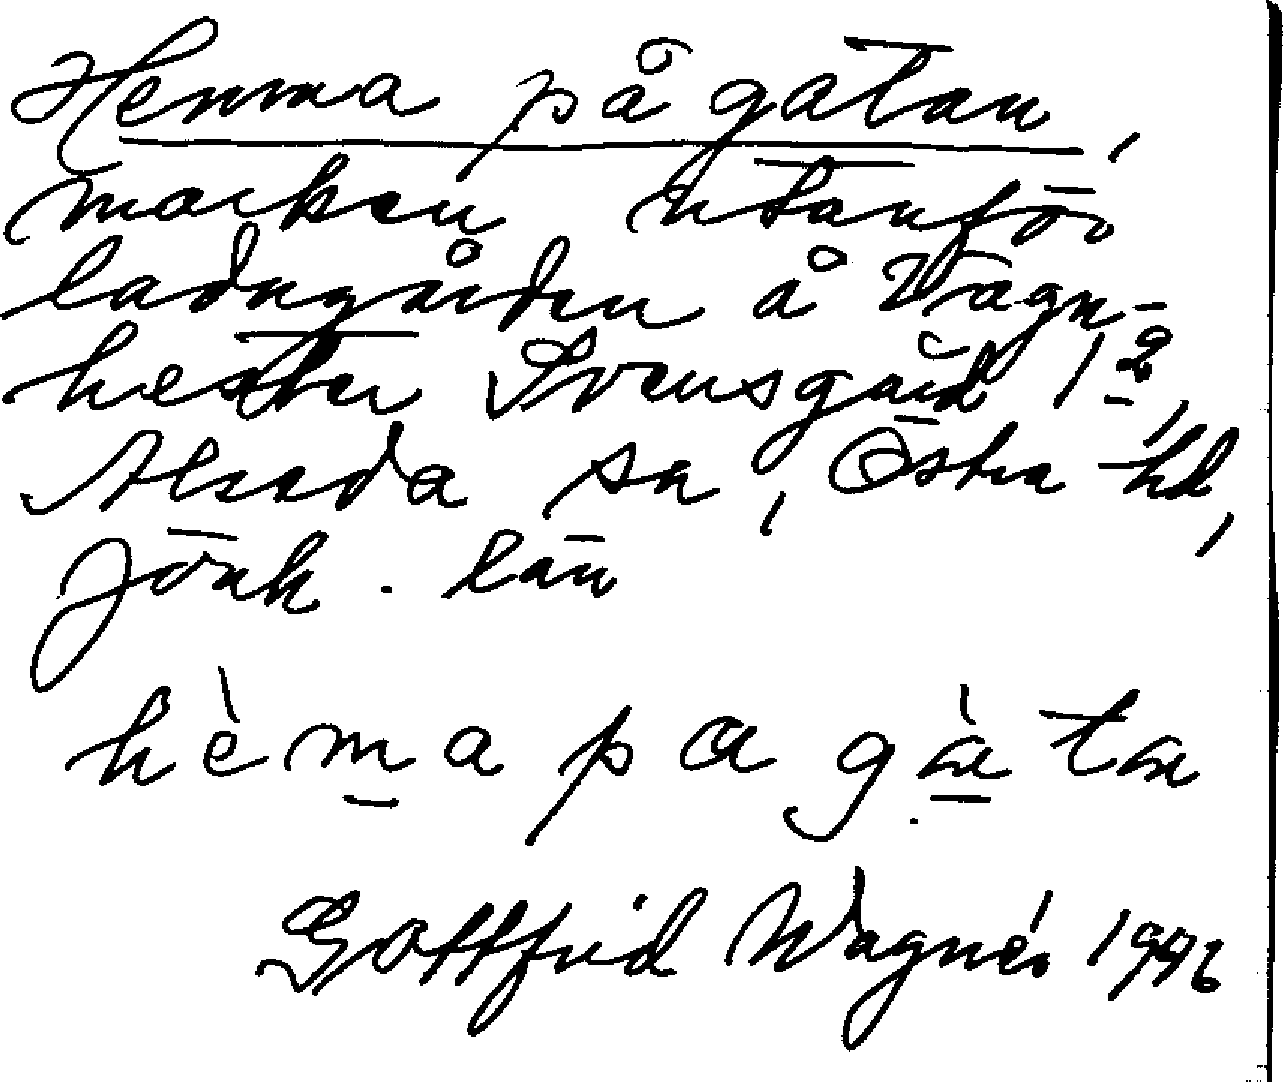 Hemma på gatan,
marken utanför
ladugården å Vagn-
hester Svensgård 1²,
Alseda sn, Östra hd,
Jönk. län
hèmapagàta
Gottfrid Wagnér 1946